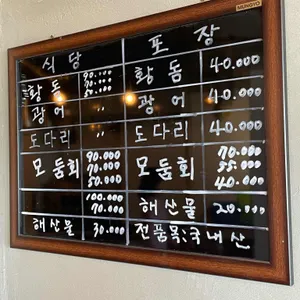 MUHOYO
식당 포장
황돔 90.000 70.000 50.000 황돔 40.000
광어 〃 광어 40.000
도다리 〃 도다리 40.000
모둠회 90.000 70.000 50.000 모둠회 70.000 55.000 40.000
100.000 70.000 해산물 20.000
해산물 30.000 전품목:국내산